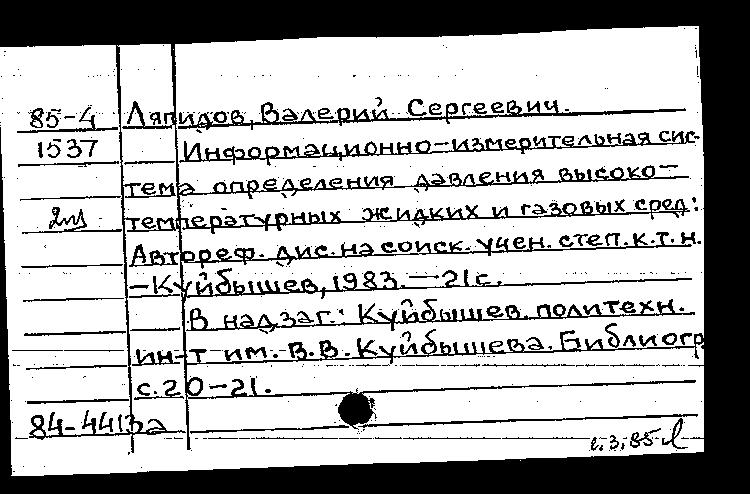 85-4 Ляпидов, Валерий Сергеевич.
1537 Информационно-измерительная сис-
тема определения давления высоко-
2м температурных жидких и газовых сред:
Автореф. дис. на соиск. учен. степ. к.т.н.
-Куйбышев, 1983. — 21с.
В надзаг.: Куйбышев. политехн.
ин-т им. В.В. Куйбышева. Библиогр
с. 20-21.
84-4413а
3.85